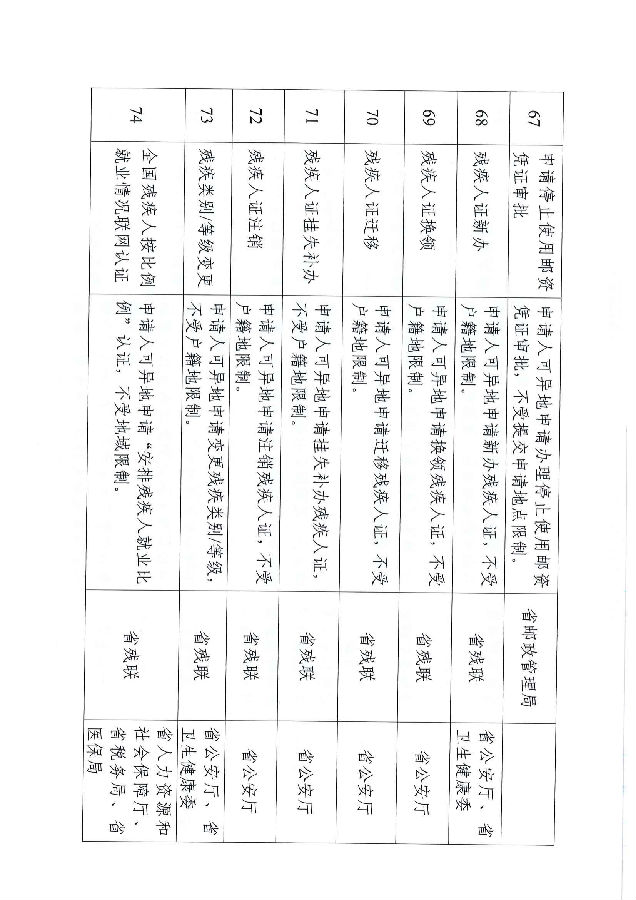 67
申请停止使用邮资
凭证审批
申请人可异地申请办理停止使用邮资
凭证审批，不受提交申请地点限制。
省邮政管理局
68
残疾人证新办
申请人可异地申请新办残疾人证，不受
户籍地限制。
省残联
省公安厅、省
卫生健康委
69
残疾人证换领
申请人可异地申请换领残疾人证，不受
户籍地限制。
省残联
省公安厅
70
残疾人证迁移
申请人可异地申请迁移残疾人证，不受
户籍地限制。
省残联
省公安厅
71
残疾人证挂失补办
申请人可异地申请挂失补办残疾人证，
不受户籍地限制。
省残联
省公安厅
72
残疾人证注销
申请人可异地申请注销残疾人证，不受
户籍地限制。
省残联
省公安厅
73
残疾类别/等级变更
申请人可异地申请变更残疾类别/等级，
不受户籍地限制。
省残联
省公安厅、省
卫生健康委
74
全国残疾人按比例
就业情况联网认证
申请人可异地申请“安排残疾人就业比
例”认证，不受地域限制。
省残联
省人力资源和
社会保障厅、
省税务局、省
医保局